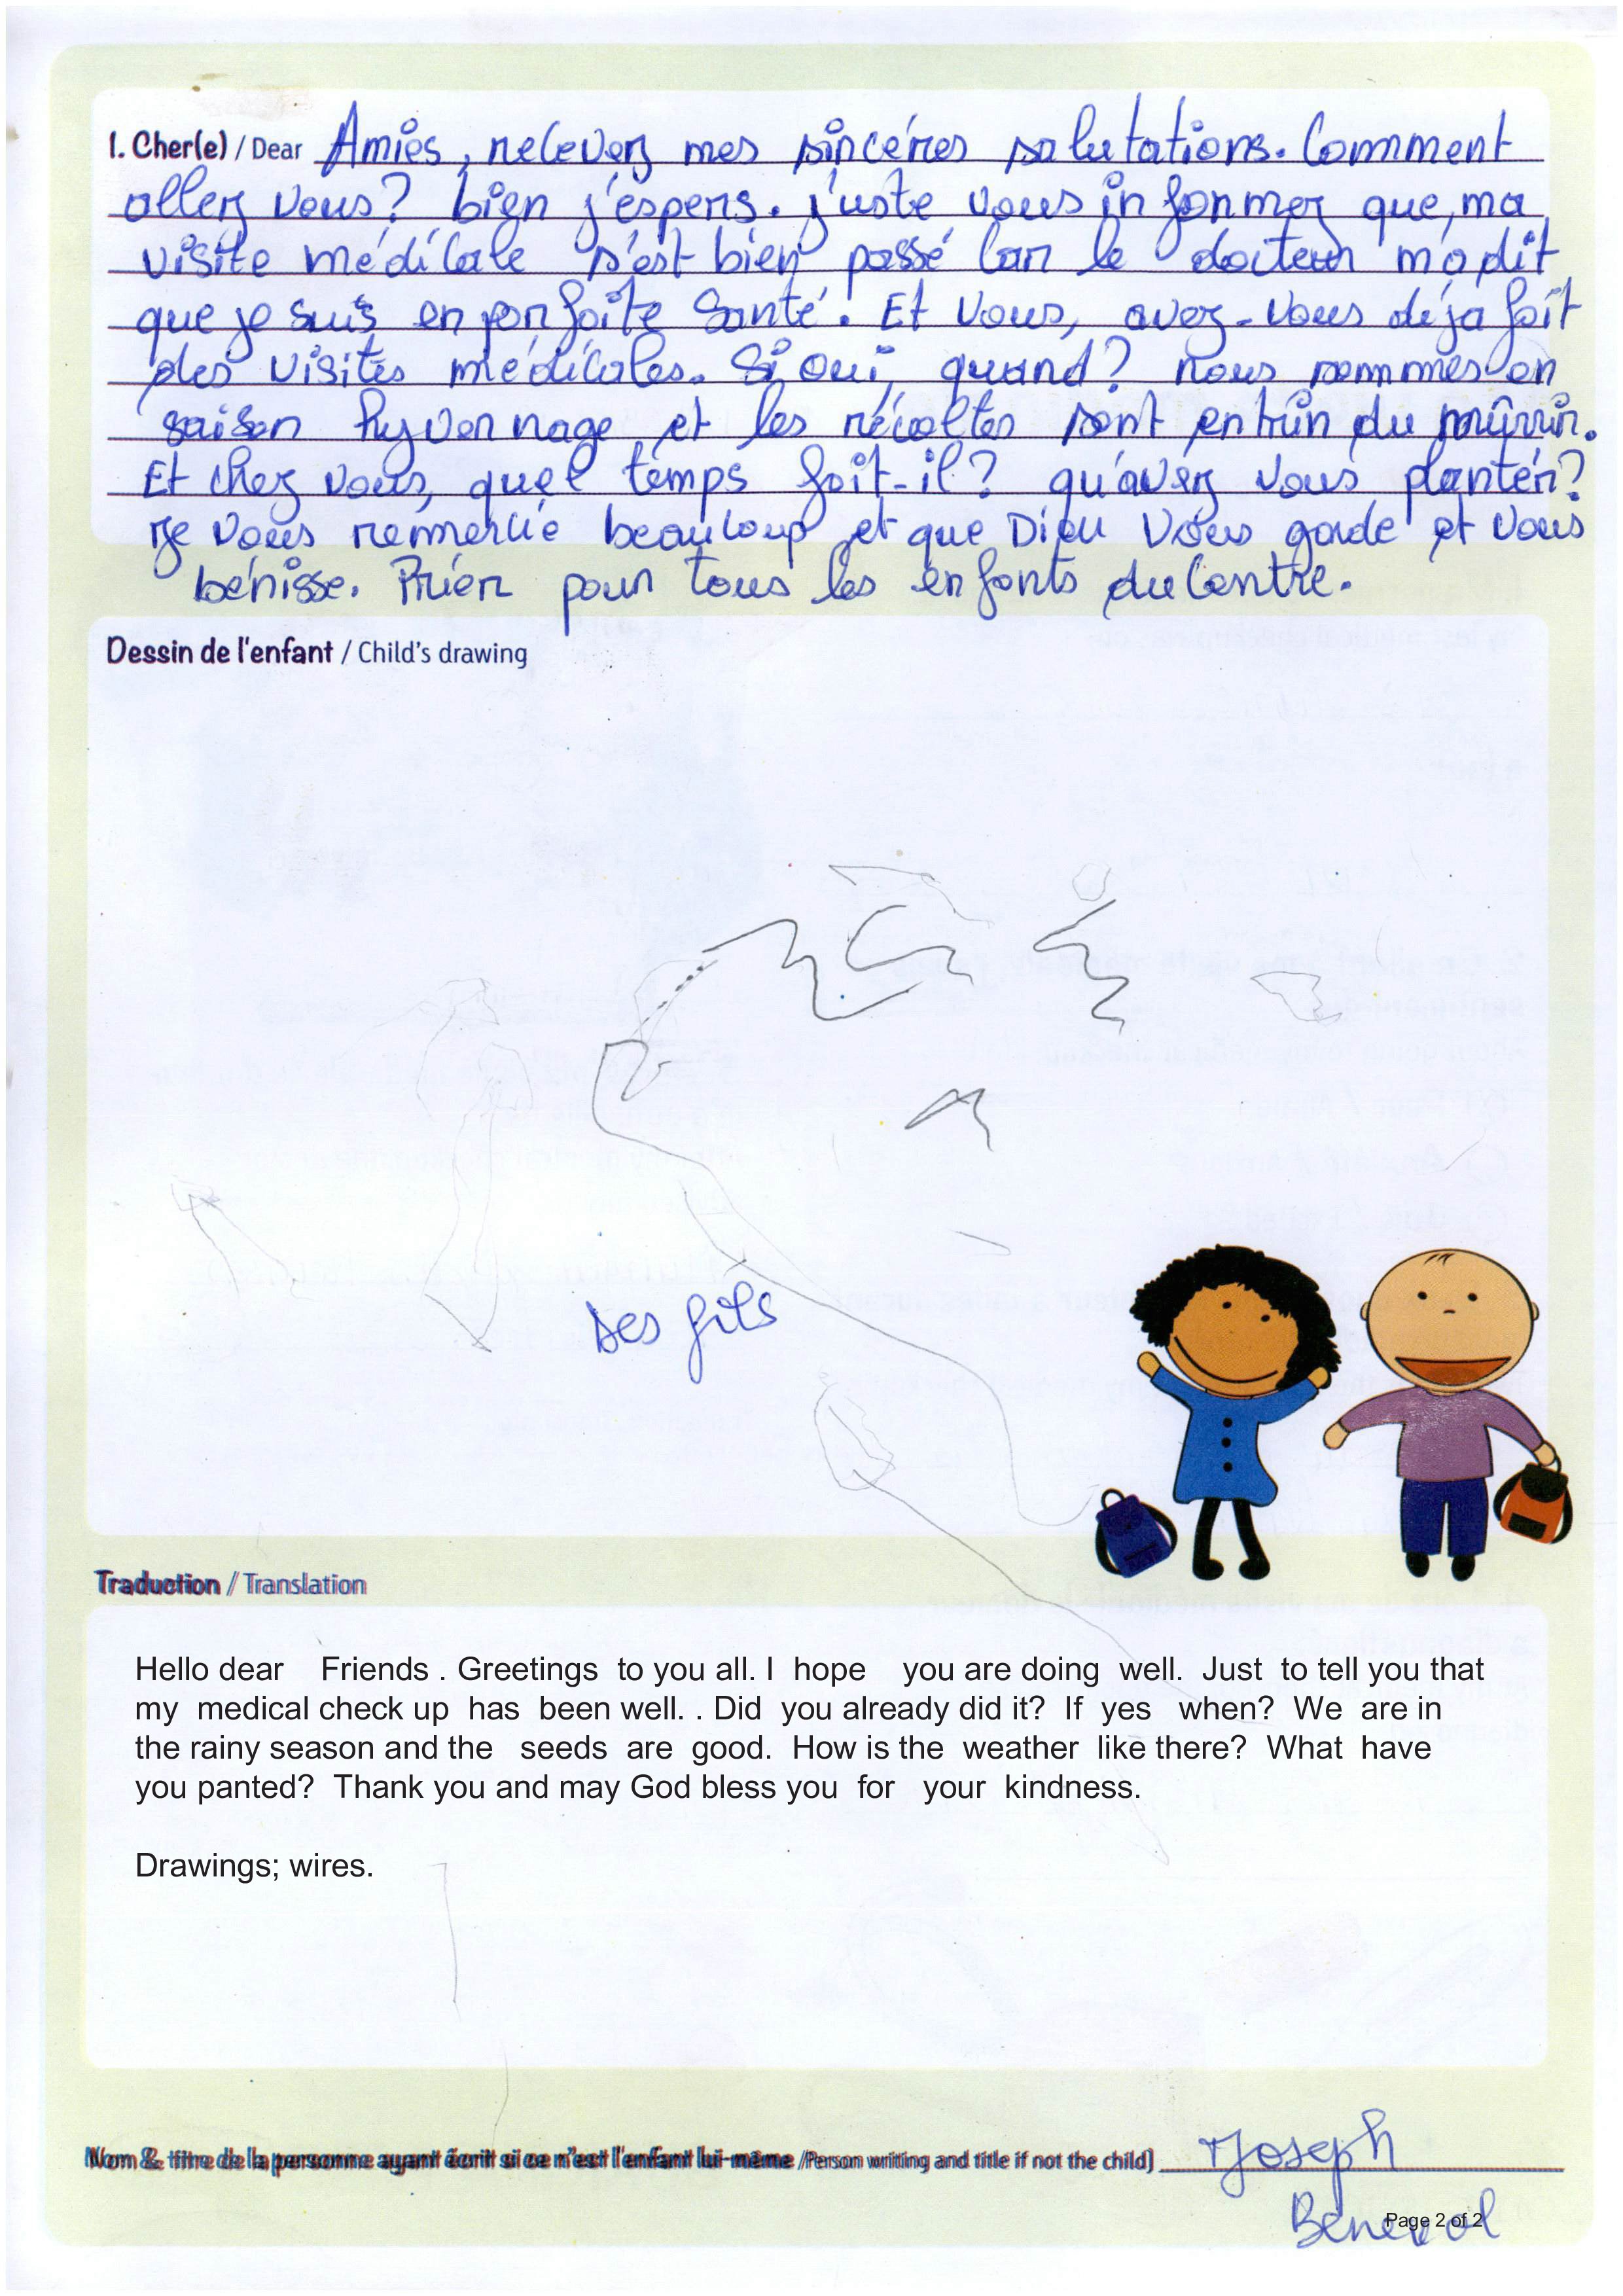 1. Cher(e) / Dear Amies, recevez mes sincéres salutations. Comment
allez vous? bien j'espers. j'uste vous informer que, ma
visite médicale s'est bien passé car le docteur m'a dit
que je suis en parfaite Santé. Et Vous, avez-vous déja fait
des visites médicales. Si oui, quand? nous sommes en
saison hyvernage et les récoltes sont entrin du mûrrir.
Et chez vous, quel temps fait-il? qu'avez vous plantér?
Je vous remercie beaucoup et que Dieu Vous garde et vous
bénisse. Priér pour tous les enfants du Centre.
Dessin de l'enfant / Child's drawing
Des fils
Traduction / Translation
Hello dear Friends . Greetings to you all. I hope you are doing well. Just to tell you that
my medical check up has been well. . Did you already did it? If yes when? We are in
the rainy season and the seeds are good. How is the weather like there? What have
you panted? Thank you and may God bless you for your kindness.
Drawings; wires.
Nom & titre de la personne ayant écrit si ce n'est l'enfant lui-même /Person writing and title if not the child) Joseph
Benevol
Page 2 of 2